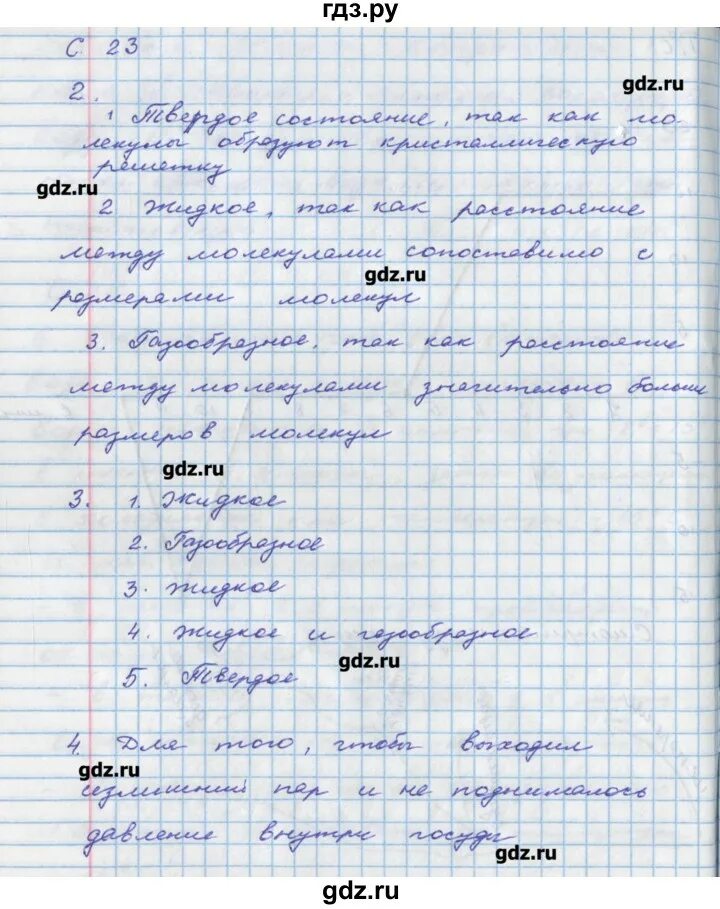 гдз.ру
С. 23
gdz.ru
2.
1 Твердое состояние, так как мо-
лекулы образуют кристаллическую
решетку
gdz.ru
2 Жидкое, так как расстояние
между молекулами сопоставимо с
gdz.ru
размерами молекул
3. Газообразное, так как расстояние
между молекулами значительно больше
размеров молекул
gdz.ru
3. 1. Жидкое
2. Газообразное
3. Жидкое
4. Жидкое и газообразное
gdz.ru
5. Твердое
4. Для того, чтобы выходил
gdz.ru
излишний пар и не поднималось
давление внутри посуды
gdz.ru
gdz.ru